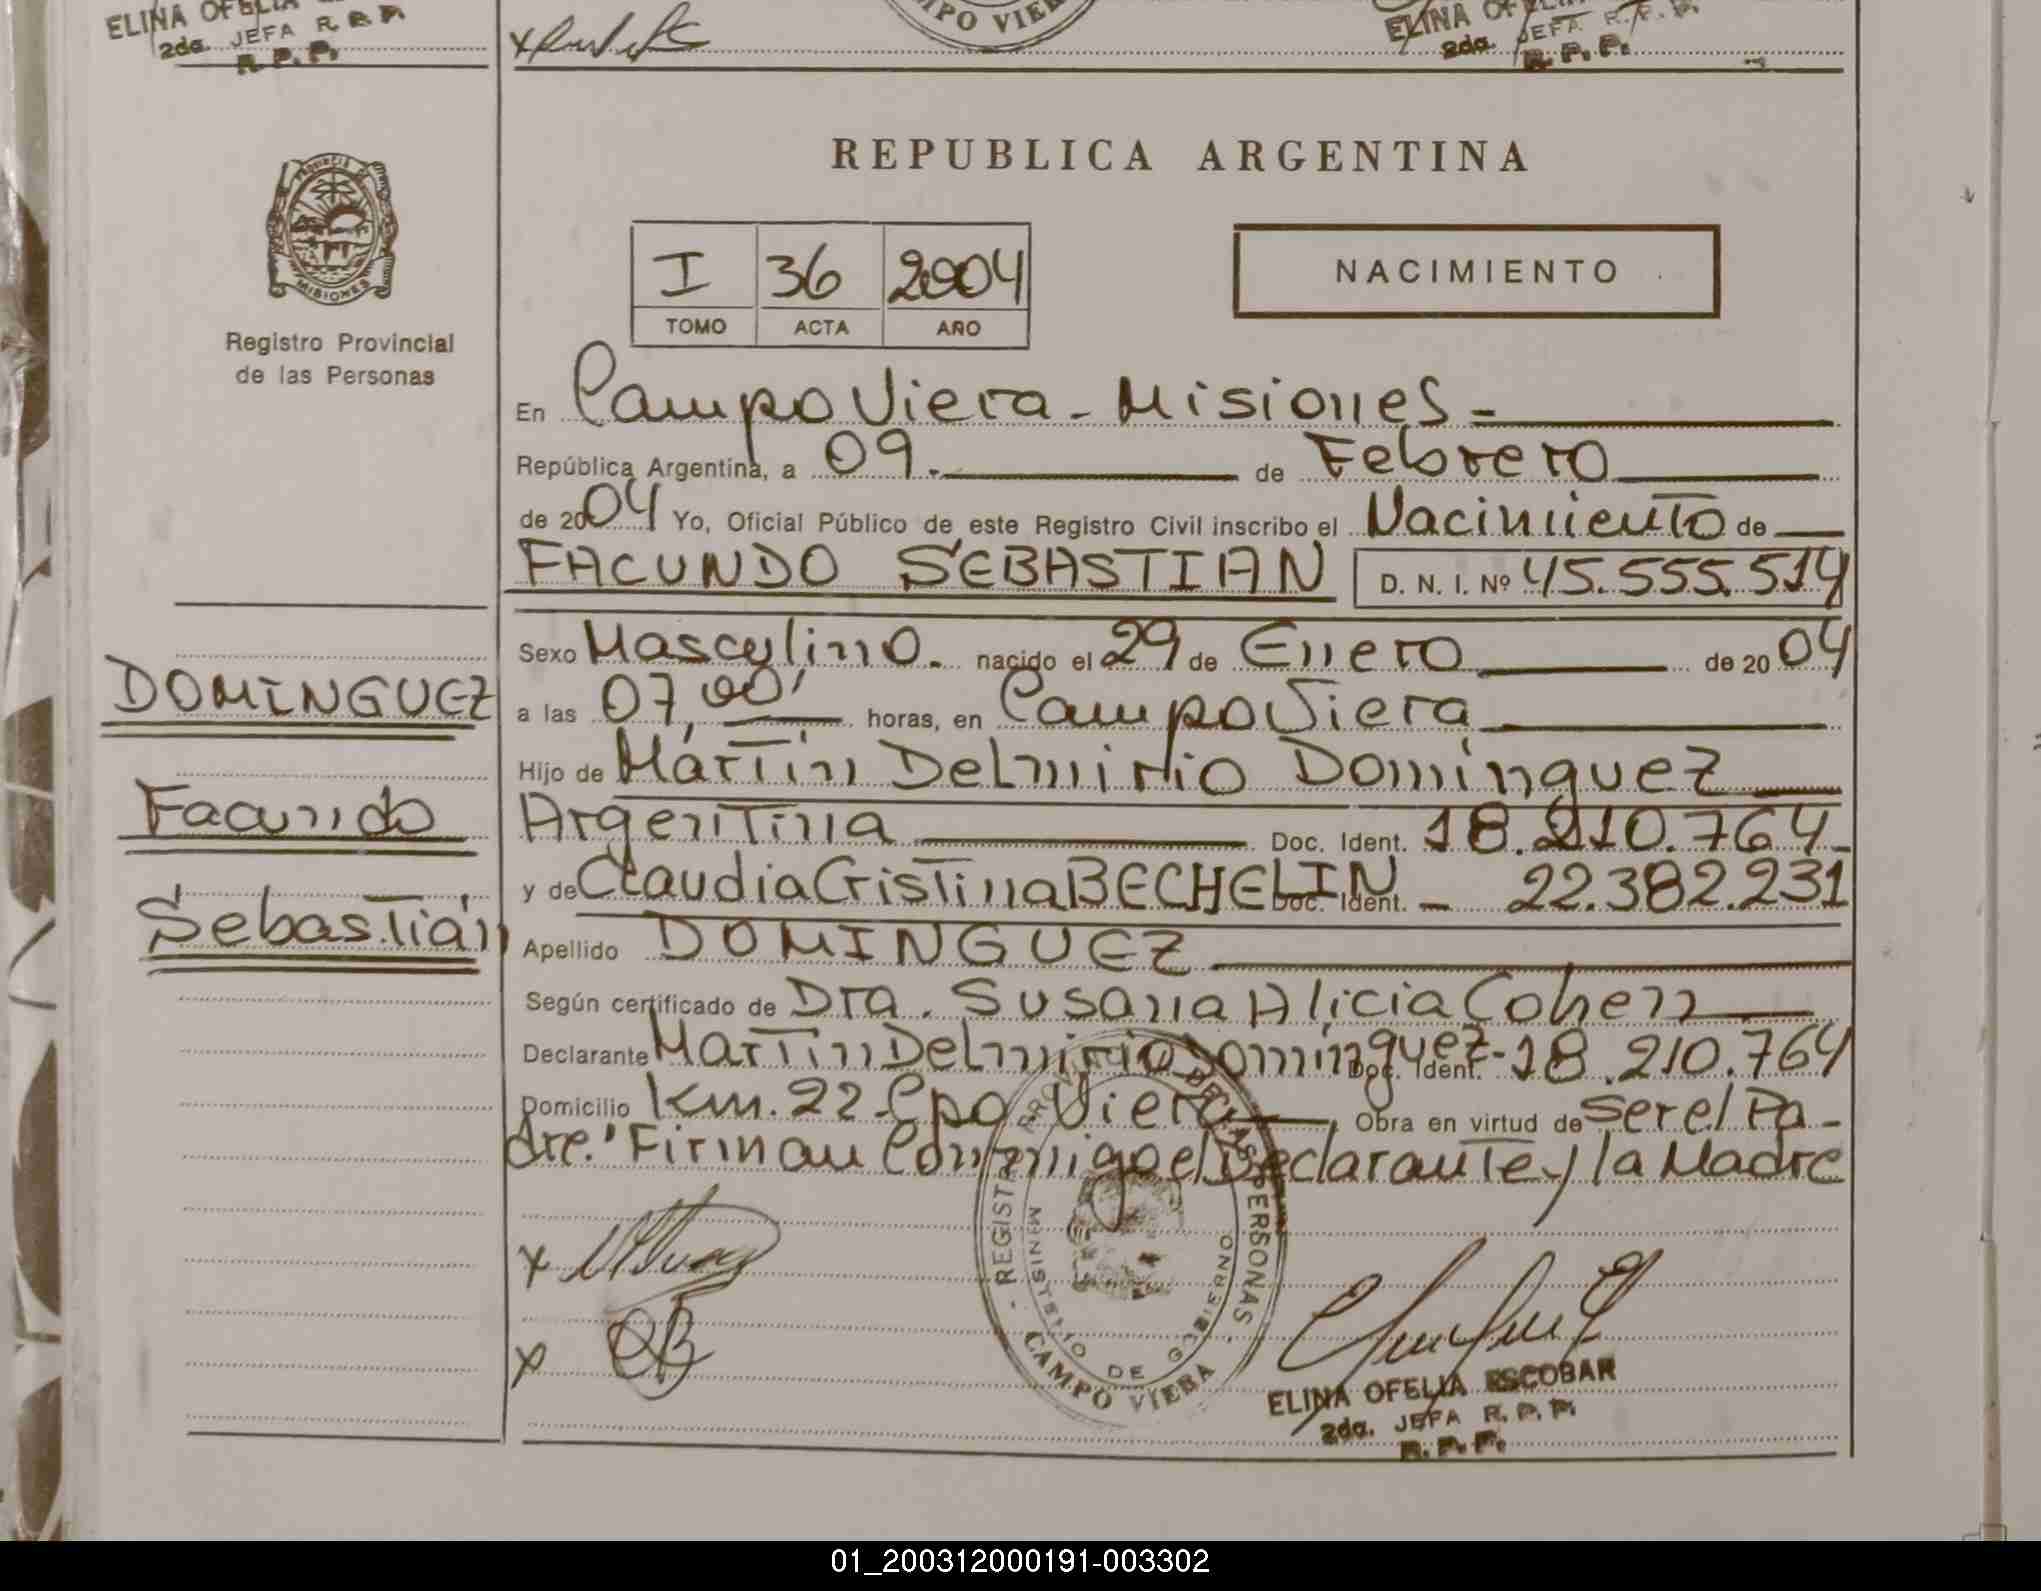 ELINA OFELIA
2da. JEFA R. P. P.
R. P. P.
CAMPO VIERA
ELINA OFELIA
2da. JEFA R. P. P.
R. P. P.
PROVINCIA DE
MISIONES
Registro Provincial
de las Personas
REPUBLICA ARGENTINA
I 36 2004
TOMO ACTA AÑO
NACIMIENTO
En Campo Viera - Misiones -
República Argentina, a 09. de Febrero
de 2004 Yo, Oficial Público de este Registro Civil inscribo el Nacimiento de
FACUNDO SEBASTIAN D. N. I. Nº 45.555.514
Sexo Masculino. nacido el 29 de Enero de 2004
a las 07,00' horas, en Campo Viera
Hijo de Martín Delmirio Domínguez
Argentina Doc. Ident. 18.210.764-
y de Claudia Cristina BECHELIN Doc. Ident. - 22.382.231
Apellido DOMINGUEZ
Según certificado de Dra. Susana Alicia Cohen
Declarante Martín Delmirio Domínguez - Doc. Ident. 18.210.764
Domicilio Km. 22 - Cpo Viera Obra en virtud de Ser el Pa-
dre.' Firman Conmigo el Declarante y la Madre
DOMINGUEZ
Facundo
Sebastián
x
x
REGISTRO PROVINCIAL DE LAS PERSONAS - CAMPO VIERA -
MINISTERIO DE GOBIERNO
ELINA OFELIA ESCOBAR
2da. JEFA R. P. P.
R. P. P.
01_200312000191-003302